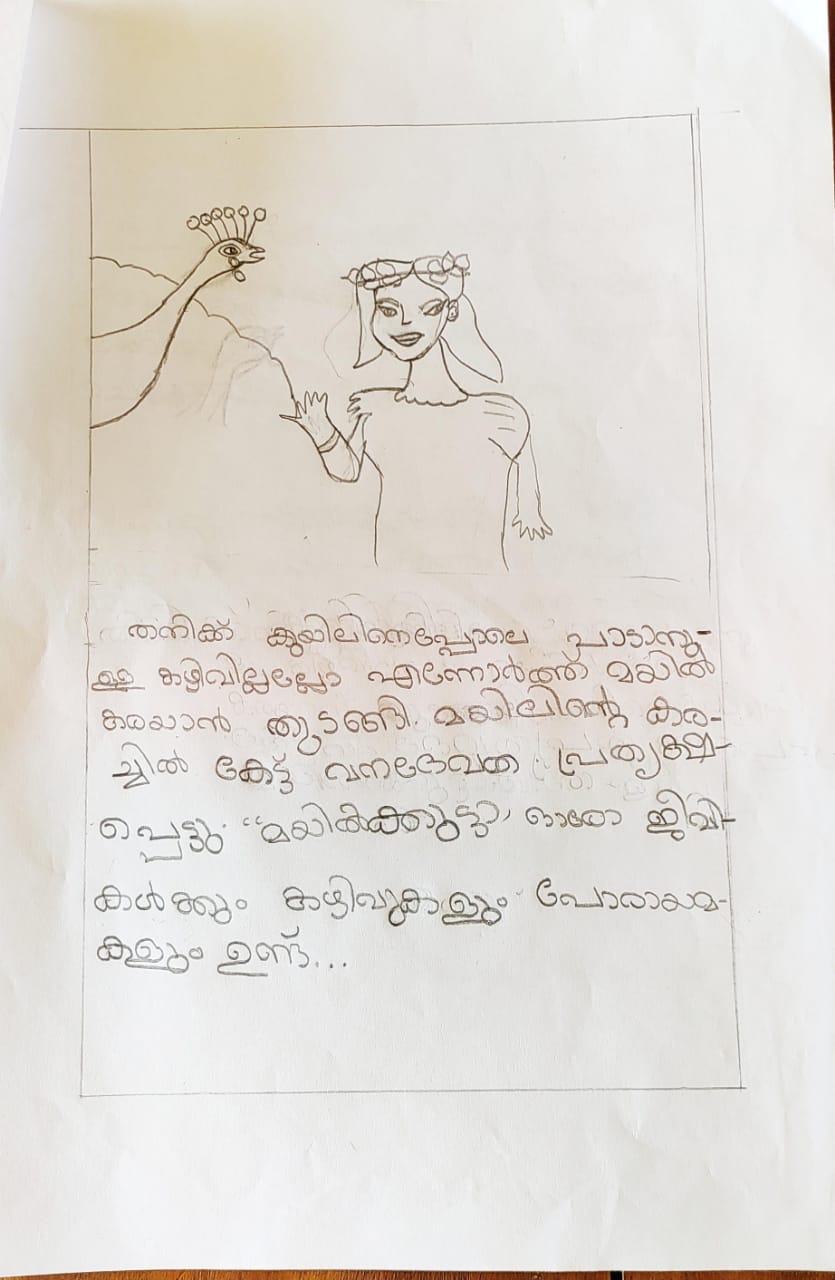 തനിക്ക് കുയിലിനെപ്പോലെ പാടാനു-
ള്ള കഴിവില്ലല്ലോ എന്നോർത്ത് മയിൽ
കരയാൻ തുടങ്ങി. മയിലിന്റെ കര-
ച്ചിൽ കേട്ട് വനദേവത പ്രത്യക്ഷ-
പ്പെട്ടു. “മയിൽക്കുട്ടാ, ഓരോ ജീവി-
കൾക്കും കഴിവുകളും പോരായമ-
കളും ഉണ്ട്...